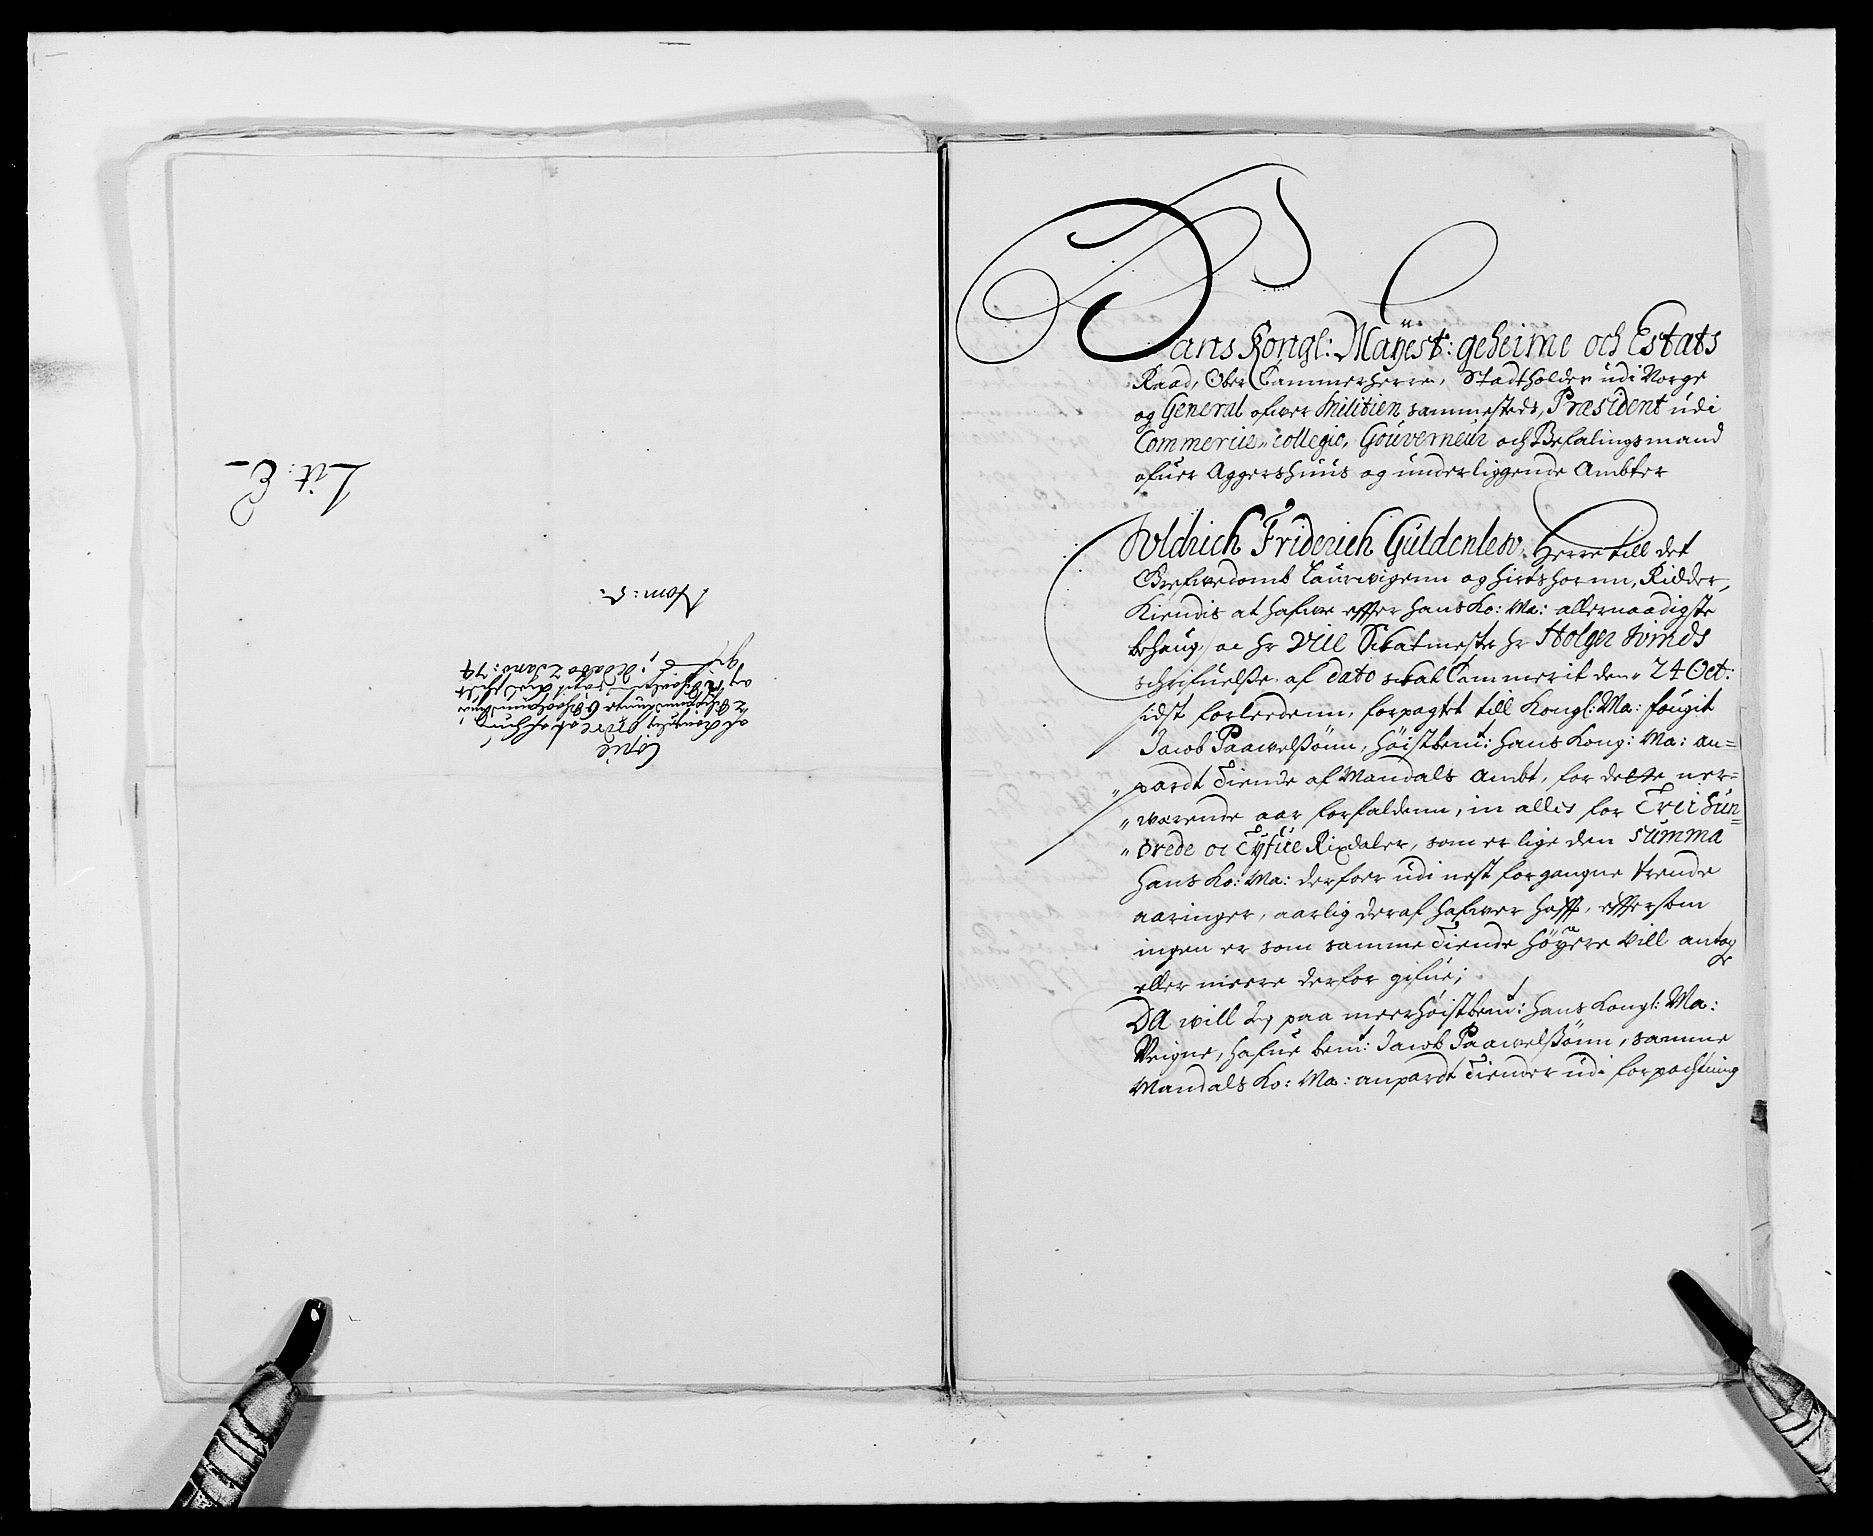 Lit: E
Nom: 5.
Copie
Hans Kongl: Mayest: geheime och Estats
Raad, Ober Cammerherre, Stadtholder udi Norge
og General ofwer Militien sammesteds, Præsident udi
Commercie collegio, Gouverneur och Befalingsmand
ofuer Aggershuus og underliggende Ambter
Wldrich Friderich Guldenlew, Herre till det
Grefwedomb Laurwigenn og Hirtshornn, Ridder,
Kiendis at hafwe effter hans Ko: Ma: allernaadigste
behaug, oc Hr Skatmester Hr Holger Winds
schrifuelsse af Dato Skat Cammerit den 24 Oct:
sidst forledenn, forpagtet till Kongl: Ma: fougit
Jacob Paawelssønn, Høistbemt: Hans Kong: Ma: an=
„ pardt Tiende af Mandals Ambt, for dette ner=
„ wærende aar forfaldenn, in alles for Treihun=
„ drede oc Tyfue Rixdaler, som er lige den summa
Hans Ko: Ma: derfoer udi nest forgangne trende
aaringer, aarlig deraf hafwer hafft, efftersom
ingen er som samme Tiende høyere vill antage
eller meere derfor gifue;
DA will Jeg paa meerhøistbemt: Hans Kongl: Ma:
Veigne, hafue bemt: Jacob Paawelssønn, samme
Mandals Ko: Ma: anpardt Tiender udi forpachtning